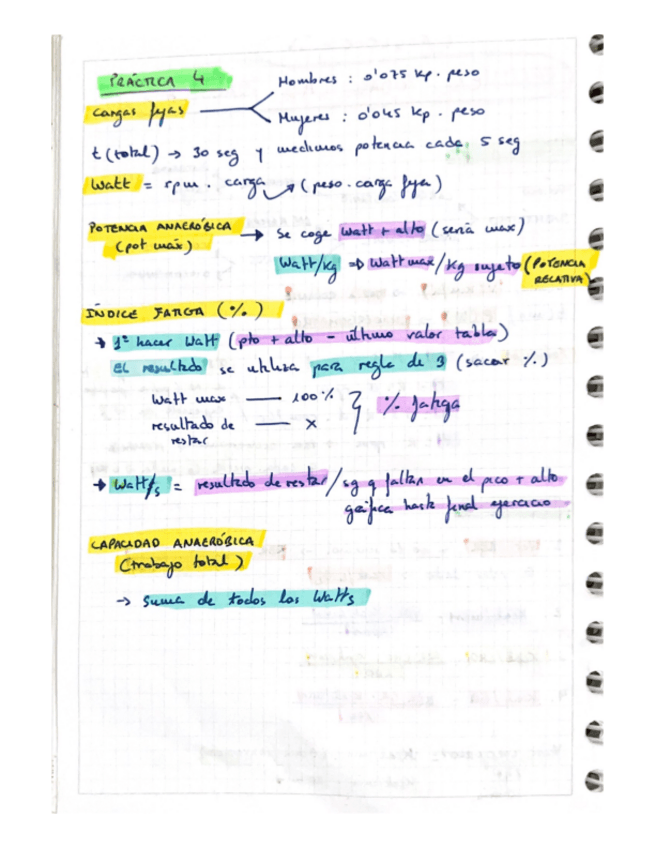 PRÁCTICA 4
Hombres : 0'075 Kp . peso
Cargas fijas
Mujeres : 0'045 Kp . peso
t (total) → 30 seg y medimos potencia cada 5 seg
Watt = rpm . carga → (peso . carga fija)
POTENCIA ANAERÓBICA → Se coge Watt + alto (sería max)
(pot máx)
Watt/kg => Watt max/Kg sujeto (POTENCIA RELATIVA)
ÍNDICE FATIGA (%)
→ 1º hacer Watt (pto + alto - último valor tabla)
El resultado se utiliza para regla de 3 (sacar %)
Watt max — 100% } % fatiga
resultado de restar — x
→ Watt/s = resultado de restar / sg q faltan en el pico + alto
gráfica hasta final ejercicio
CAPACIDAD ANAERÓBICA
(trabajo total)
→ Suma de todos los Watts